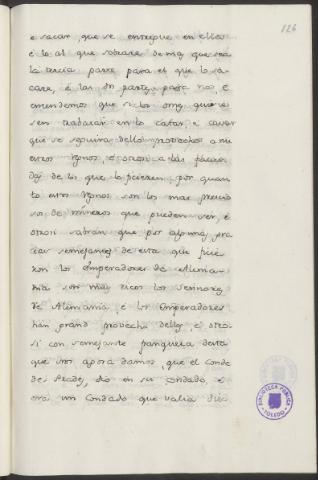 126
e sacar, que se entregue en ellas
é lo al que sobrare demas que sea
la tercia parte para el que lo sa-
care, é las dos partes para nos é
entendemos que si los omes quisie-
sen trabaxar en lo catar, é cavar
que se seguiria dello provecho a nu-
estros Regnos, é otrosi a las facien-
das de los que lo ficieren, por quan-
to estos Regnos son los mas precio-
sos de mineros que pueden ser, é
otrosi sabran que por algunas gra-
cias semejantes de esta que ficie-
ron los Emperadores de Alema-
nia son muy ricos los Sennores
de Alemania, é los Emperadores
han grand provecho dellas, é otro-
si con semejante franqueza desta
que nos agora damos, que el Conde
de dió en su condado, é
era un Condado que valia diez
BIBLIOTECA PUBLICA
TOLEDO